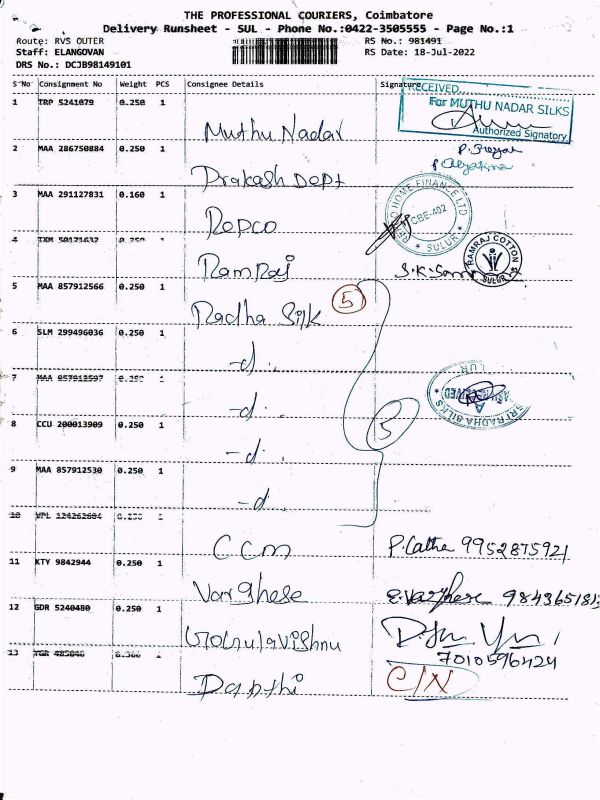 THE PROFESSIONAL COURIERS, Coimbatore
Delivery Runsheet - SUL - Phone No.:0422-3505555 - Page No.:1
Route: RVS OUTER RS No.: 981491
Staff: ELANGOVAN RS Date: 18-Jul-2022
DRS No.: DCJB98149101
S No Consignment No Weight PCS Consignee Details Signature
RECEIVED
For MUTHU NADAR SILKS
1 TRP 5241079 0.250 1 Muthu Nadar
Authorized Signatory
2 MAA 286750884 0.250 1 Prakash Dept
3 MAA 291127831 0.160 1 Repco
REPCO HOME FINANCE LTD
CBE-402
SULUR
4 TXM 50171637 0.250 1 Ramraj
RAMRAJ COTTON
SULUR
5 MAA 857912566 0.250 1 Radha Silk 5
6 SLM 299496036 0.250 1 -d.
7 MAA 857912597 0.250 1 -d.
SRI RADHA SILKS
8 CCU 200013909 0.250 1 -d. 5
9 MAA 857912530 0.250 1 -d.
10 VPL 124262604 0.250 1 CCM P. Latha 9952875921
11 KTY 9842944 0.250 1 Varghese E. Varghese 984365181
12 GDR 5240480 0.250 1 Gokulavishnu
7010596424
13 TGR 485046 0.300 1 Danthi C/N